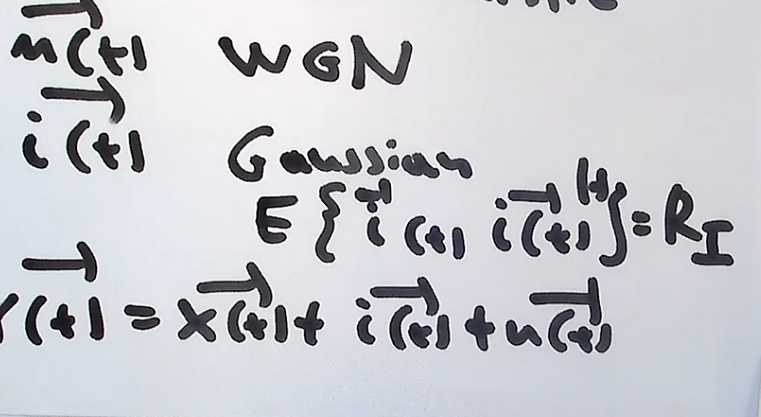 n⃗(t) WGN
i⃗(t) Gaussian
E{i⃗(t) i⃗(t)ᴴ} = R_I
Y⃗(t) = x⃗(t) + i⃗(t) + n⃗(t)